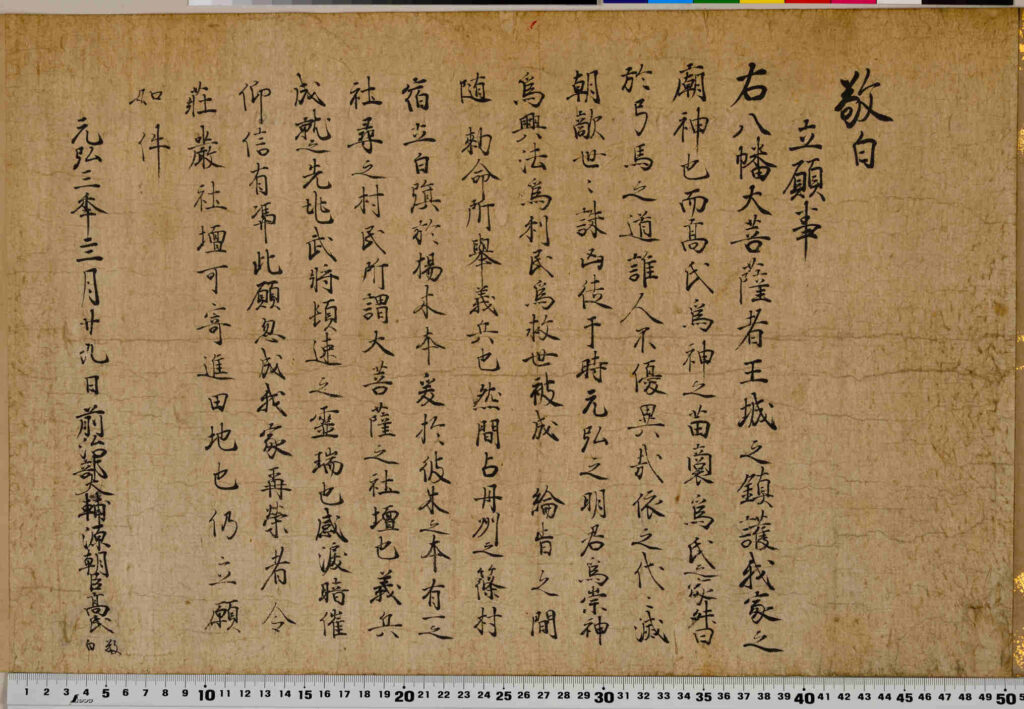 敬白
立願事
右八幡大菩薩者王城之鎮護我家之
廟神也而高氏為神之苗裔為氏之家督
於弓馬之道誰人不優異哉依之代〻滅
朝敵世〻誅凶徒于時元弘之明君為崇神
為興法為利民為救世被成　綸旨之間
随　勅命所挙義兵也然間占丹州之篠村
宿立白旗於楊木本爰於彼木之本有一之
社尋之村民所謂大菩薩之社壇也義兵
成就之先兆武将頓速之霊瑞也感涙暗催
仰信有馮此願忽成我家再栄者令
荘厳社壇可寄進田地也仍立願
如件
元弘三年三月廿九日前治部大輔源朝臣高氏
敬白
1 2 3 4 5 6 7 8 9 10 11 12 13 14 15 16 17 18 19 20 21 22 23 24 25 26 27 28 29 30 31 32 33 34 35 36 37 38 39 40 41 42 43 44 45 46 47 48 49 50